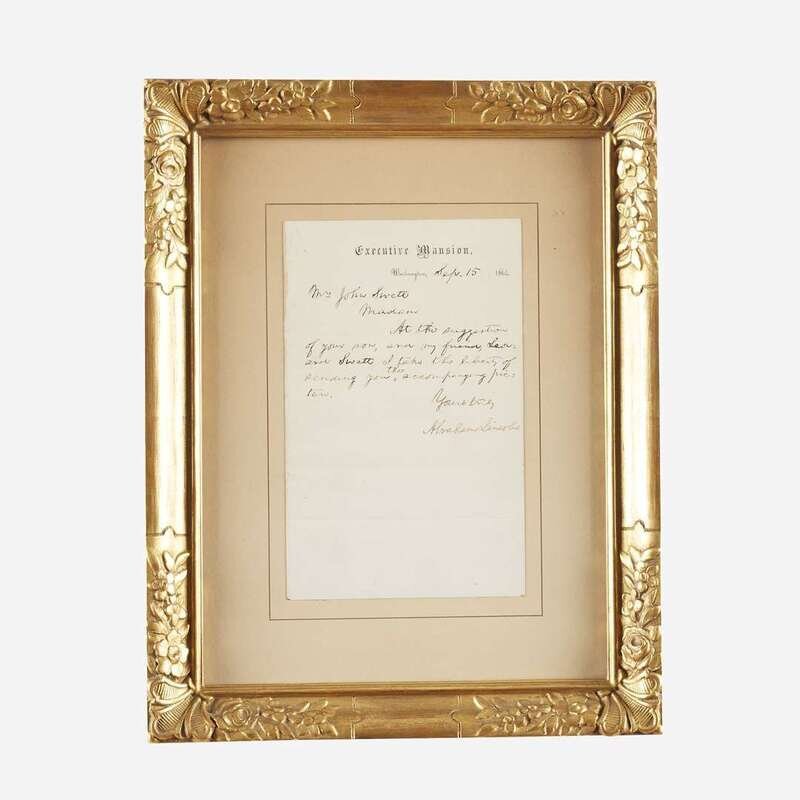 Executive Mansion,
Washington, Sep. 15 186
Mrs John Swett
Madam
At the suggestion
of your son, and my friend, Leon-
ard Swett I take the liberty of
sending you the accompanying pic-
ture.
Yours truly
Abraham Lincoln